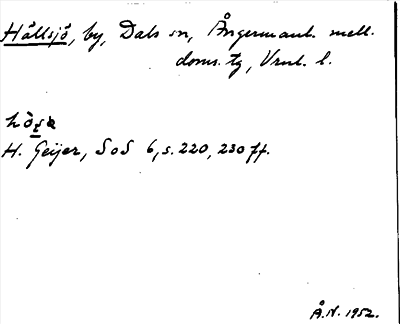 Hällsjö, by, Dals sn, Ångermanl. mell.
doms. tg, Vrnl. l.
H. Geijer, SoS 6, s. 220, 230 ff.
Å.N. 1952.